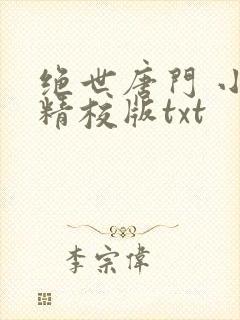 绝世唐門 小
精校版txt
李宗偉